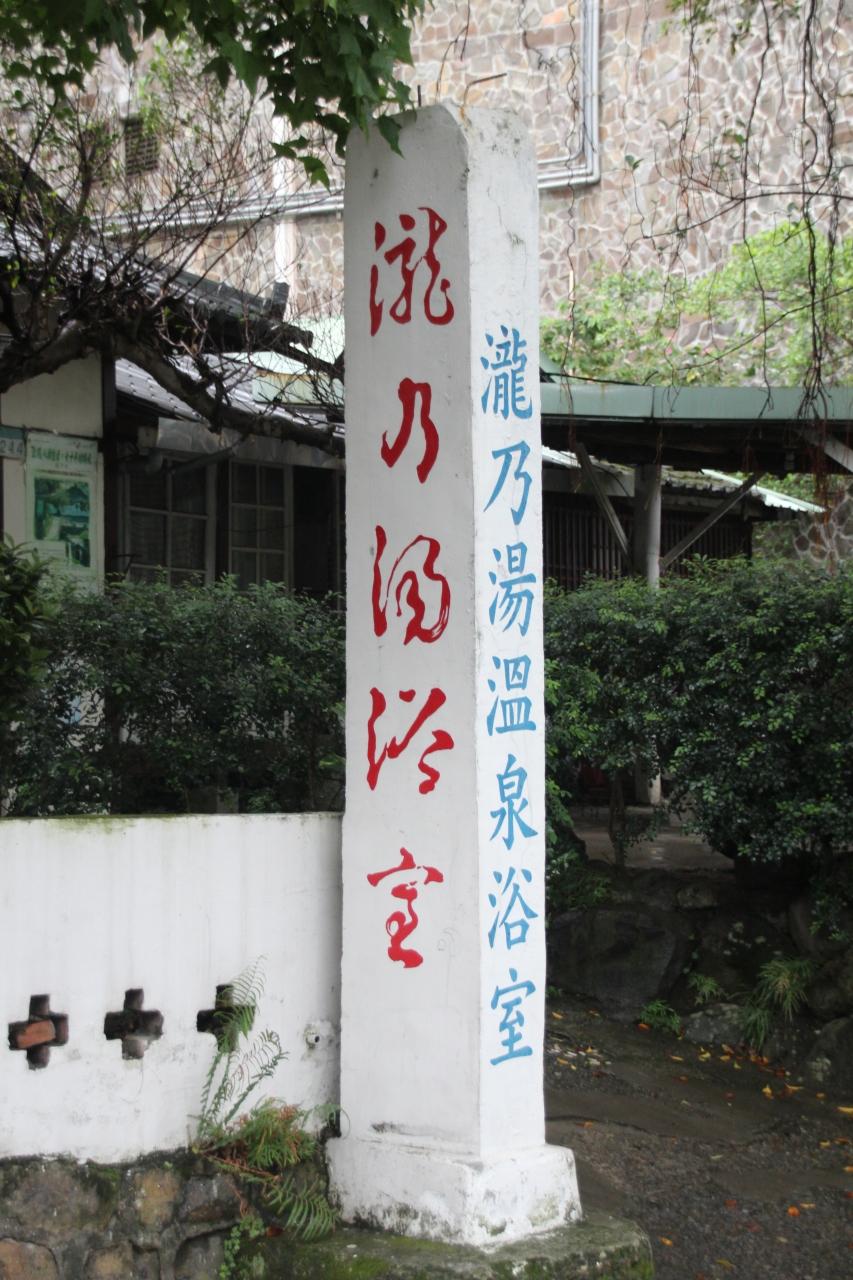 瀧乃湯浴室
瀧乃湯溫泉浴室
244